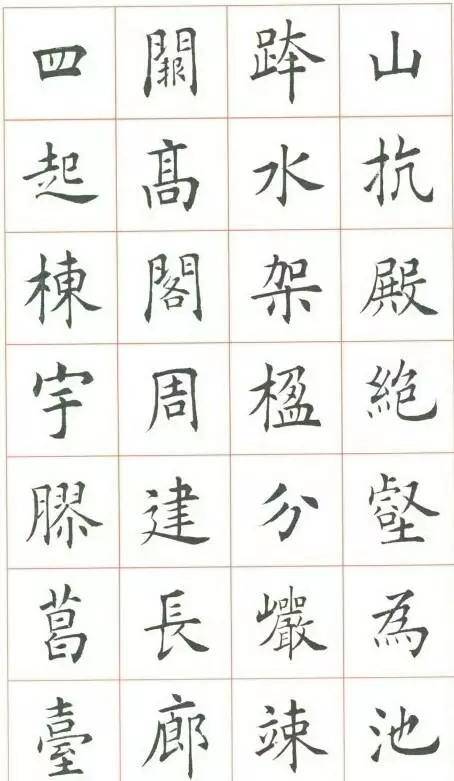 山抗殿絶壑為池
跨水架楹分巖竦
闕高閣周建長廊
四起棟宇膠葛臺